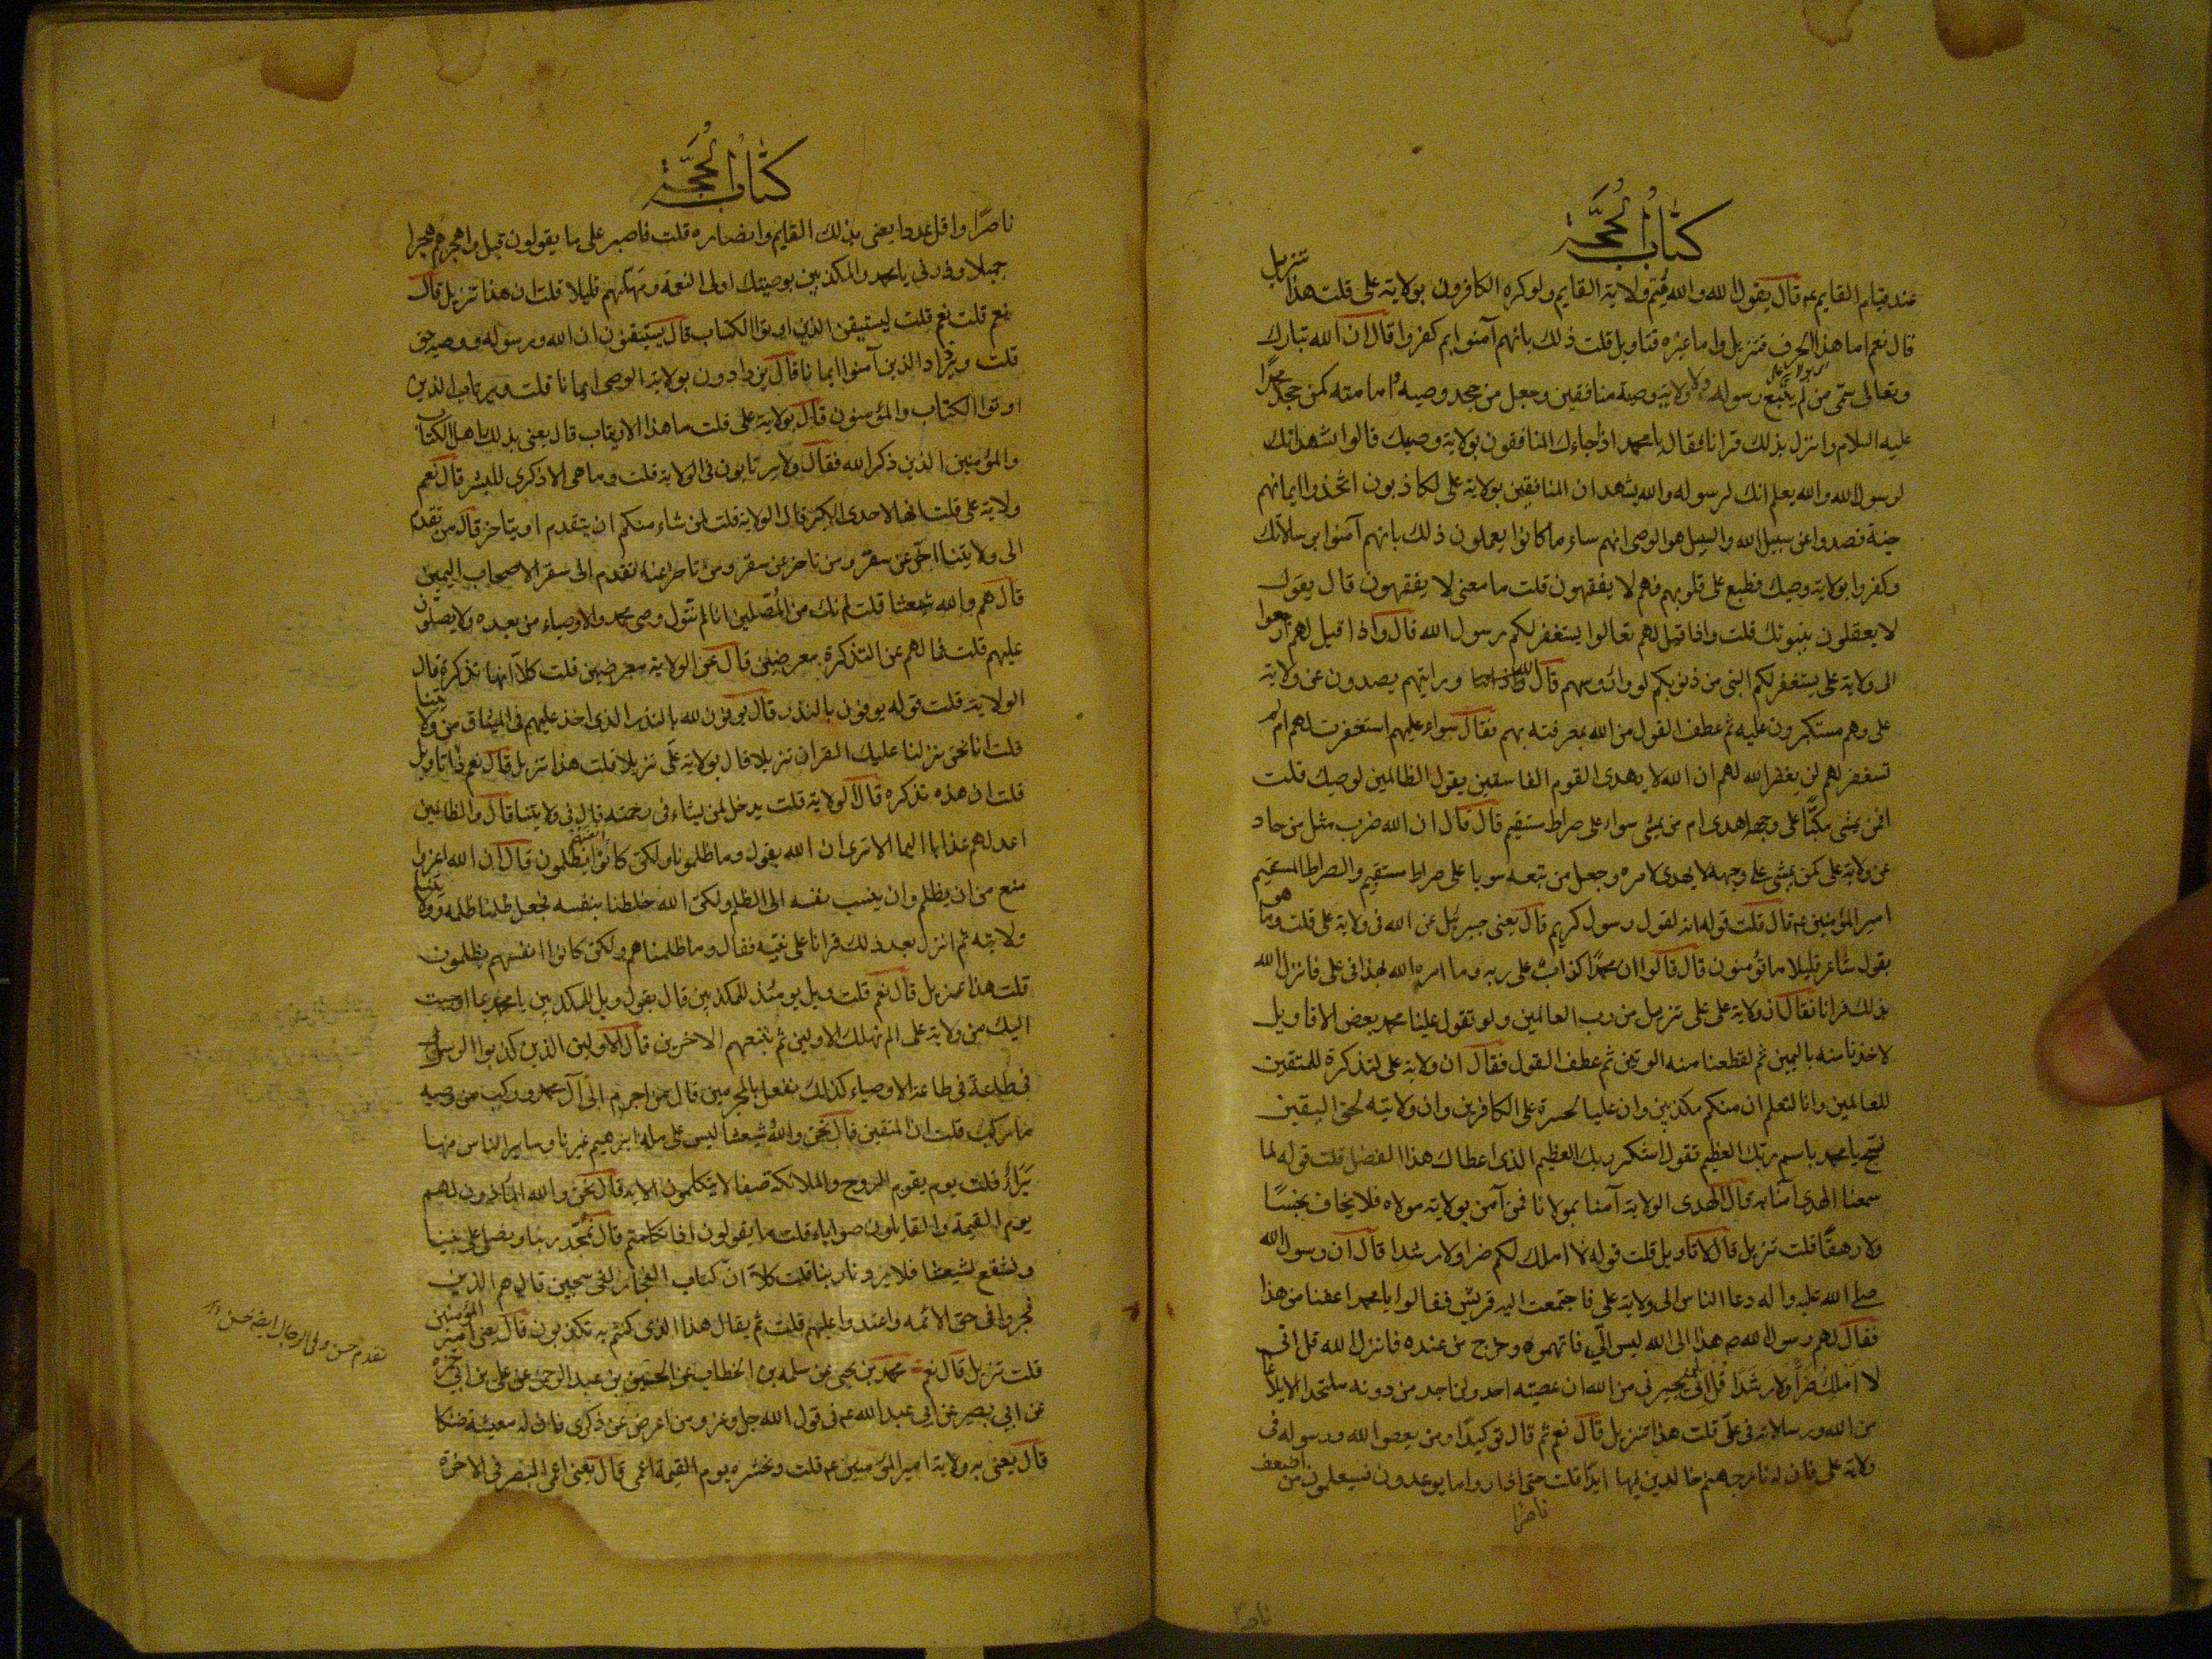 كتاب الحجة
عند قيام القايم عم قال يقول الله والله متم ولاية القايم ولو كره الكافرون بولاية على قلت هذا تنزيل
قال نعم اما هذا الحرف فتنزيل واما غيره فتاويل قلت ذلك بانهم آمنوا ثم كفروا قال ان الله تبارك
وتعالى سمى من لم يتبع رسوله ولاية وصية منافقين وجعل من جحد وصيه امامته كمن جحد محمدا
عليه السلام وانزل بذلك قرانا فقال يا محمد اذا جاءك المنافقون بولاية وصيك قالوا نشهد انك
لرسول الله والله يعلم انك لرسوله والله يشهد ان المنافقين بولاية على لكاذبون اتخذوا ايمانهم
جنة فصدوا عن سبيل الله والسبيل هو الوصى انهم ساء ما كانوا يعملون ذلك بانهم آمنوا برسالاتك
وكفروا بولاية وصيك فطبع على قلوبهم فهم لا يفقهون قلت ما معنى لا يفقهون قال يقول
لا يعقلون بنبوتك قلت واذا قيل لهم تعالوا يستغفر لكم رسول الله قال واذا قيل لهم ارجعوا
الى ولاية على يستغفر لكم النبى من ذنوبكم لووا رؤسهم قال الله ورايتهم يصدون عن ولاية
على وهم مستكبرون عليه ثم عطف القول من الله بمعرفته بهم فقال سواء عليهم استغفرت لهم ام لم
تستغفر لهم لن يغفر الله لهم ان الله لا يهدى القوم الفاسقين يقول الظالمين لوصيك قلت
افمن يمشى مكبا على وجهه اهدى ام من يمشى سواء على صراط مستقيم قال قال ان الله ضرب مثل من حاد
عن ولاية على كمن يمشى على وجهه لا يهدى لامره وجعل من تبعه سويا على صراط مستقيم والصراط المستقيم
امير المؤمنين عم قال قلت قوله انه لقول رسول كريم قال يعنى جبرئيل عن الله فى ولاية على قلت وما هو
بقول شاعر قليلا ما تؤمنون قال قالوا ان محمدا كذاب على ربه وما امره الله بهذا فى على فانزل الله
بذلك قرانا فقال ان ولاية على تنزيل من رب العالمين ولو تقول علينا محمد بعض الاقاويل
لاخذنا منه باليمين ثم لقطعنا منه الوتين ثم عطف القول فقال ان ولاية على لتذكرة للمتقين
للعالمين وانا لنعلم ان منكم مكذبين وان عليا لحسرة على الكافرين وان ولايته لحق اليقين
فسبح يا محمد باسم ربك العظيم تقول اشكر ربك العظيم الذى اعطاك هذا الفضل قلت قوله لما
سمعنا الهدى آمنا به قال الهدى الولاية آمنا بمولانا فمن آمن بولاية مولاه فلا يخاف بخسا
ولا رهقا قلت تنزيل قال لا تاويل قلت قوله لا املك لكم ضرا ولا رشدا قال ان رسول الله
صلى الله عليه واله دعا الناس الى ولاية على فاجتمعت اليه قريش فقالوا يا محمد اعفنا من هذا
فقال لهم رسول الله ص هذا الى الله ليس الى فاتهموه وخرج من عنده فانزل الله قل انى
لا املك ضرا ولا رشدا قل انى لن يجيرنى من الله ان عصيته احد ولن اجد من دونه ملتحدا الا بلاغا
من الله ورسالاته فى على قلت هذا تنزيل قال نعم ثم قال توكيدا ومن يعص الله ورسوله فى
ولاية على فان له نار جهنم خالدين فيها ابدا قلت حتى اذا راوا ما يوعدون فسيعلمون من اضعف
ناصرا
كتاب الحجة
ناصرا واقل عددا يعنى بذلك القايم وانصاره قلت فاصبر على ما يقولون قيل واهجرهم هجرا
جميلا وذرنى يا محمد والمكذبين بوصيتك اولى النعمة ومهلهم قليلا قلت ان هذا تنزيل قال
نعم قلت نعم قلت ليستيقن الذين اوتوا الكتاب قال يستيقنون ان الله ورسوله ووصيه حق
قلت ويزداد الذين آمنوا ايمانا قال يزدادون بولاية الوصى ايمانا قلت ويرتاب الذين
اوتوا الكتاب والمؤمنون قال بولاية على قلت ما هذا الارتياب قال يعنى بذلك اهل الكتاب
والمؤمنين الذين ذكر الله فقال ولا يرتابون فى الولاية قلت وما هى الا ذكرى للبشر قال نعم
ولاية على قلت انها لاحدى الكبر قال الولاية قلت لمن شاء منكم ان يتقدم او يتاخر قال من تقدم
الى ولايتنا اخر عن سقر ومن تاخر عنا تقدم الى سقر الا اصحاب اليمين
قال هم والله شيعتنا قلت لم نك من المصلين انا لم نتول وصى محمد والاوصياء من بعده ولا يصلون
عليهم قلت فما لهم عن التذكرة معرضين قال عن الولاية معرضين قلت كلا انها تذكرة قال
الولاية قلت قوله يوفون بالنذر قال يوفون لله بالنذر الذى اخذ عليهم فى الميثاق من ولايتنا
قلت انا نحن نزلنا عليك القران تنزيلا قال بولاية على تنزيلا قلت هذا تنزيل قال نعم ذا تاويل
قلت ان هذه تذكرة قال الولاية قلت يدخل من يشاء فى رحمته قال فى ولايتنا قال والظالمين
اعد لهم عذابا اليما الا ترى ان الله يقول وما ظلمونا ولكن كانوا انفسهم يظلمون قال ان الله اعز و
منع من ان يظلم وان ينسب نفسه الى الظلم ولكن الله خلطنا بنفسه فجعل ظلمنا ظلمه وولايتنا
ولايته ثم انزل بعد ذلك قرانا على نبيه فقال وما ظلمناهم ولكن كانوا انفسهم يظلمون
قلت هذا تنزيل قال نعم قلت ويل يومئذ للمكذبين قال يقول ويل للمكذبين يا محمد بما اوحيت
اليك من ولاية على الم نهلك الاولين ثم نتبعهم الاخرين قال الاولين الذين كذبوا الرسول
فى طاعة الاوصياء كذلك نفعل بالمجرمين قال من اجرم الى آل محمد وركب من وصيه
ما ركب قلت ان المتقين قال نحن والله وشيعتنا ليس على ملة ابرهيم غيرنا وساير الناس منها
براء قلت يوم يقوم الروح والملائكة صفا لا يتكلمون الاية قال نحن والله المأذون لهم
يوم القيمة والقايلون صوابا قلت ما يقولون اذا تكلمتم قال نمجد ربنا ونصلى على نبينا
ونشفع لشيعتنا فلا يردنا ربنا قلت كلا ان كتاب الفجار لفى سجين قال هم الذين
فجروا فى حق الائمه واعتدوا عليهم قلت ثم يقال هذا الذى كنتم به تكذبون قال يعنى امير المؤمنين
قلت تنزيل قال نعم محمد بن يحيى عن سلمه بن الخطاب عن الحسين بن عبد الرحمن عن على بن ابى حمزة
عن ابي بصير عن ابي عبد الله عم فى قول الله جل وعز ومن اعرض عن ذكرى فان له معيشة ضنكا
قال يعنى به ولاية امير المؤمنين عم قلت ونحشره يوم القيمة اعمى قال يعنى اعمى البصر فى الاخرة